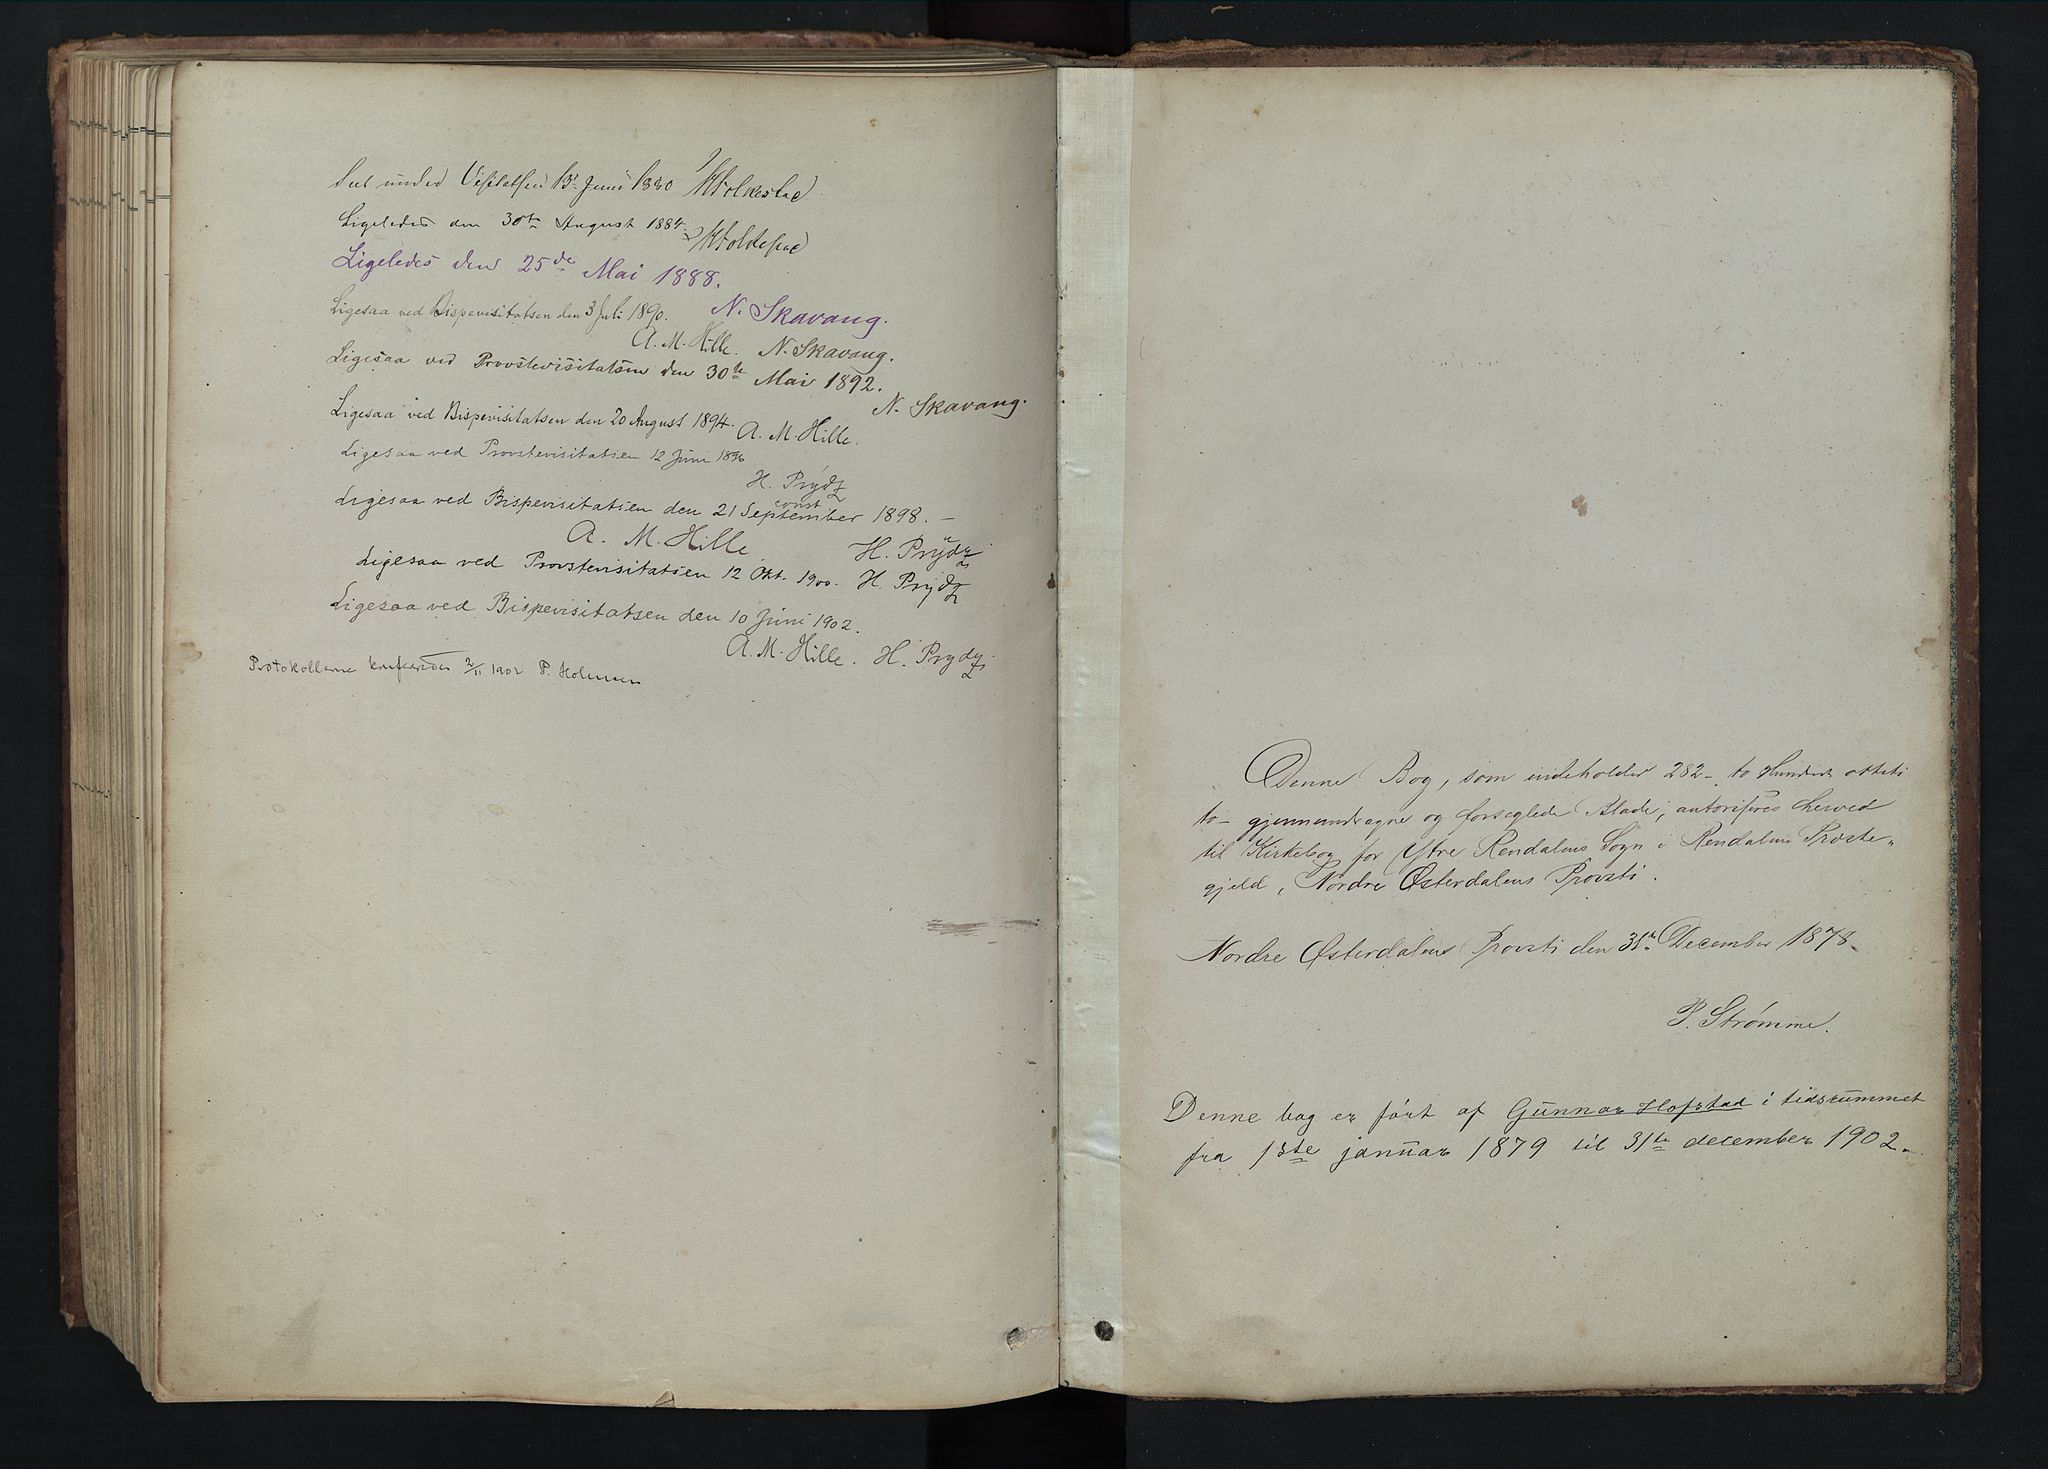 Seet under Visitatsen 13de Juni 1880
Ligeledes den 30te August 1884.
Ligeledes den 25de Mai 1888.
N. Skavang.
Ligesaa ved Bispevisitatsen den 3 Juli 1890.
A. M. Hille. N. Skavang.
Ligesaa ved Provstevisitatsen den 30te Mai 1892.
N. Skavang.
Ligesaa ved Bispevisitatsen den 20 August 1894.
A. M. Hille.
Ligesaa ved Provstevisitatsen 12 Juni 1896
H. Prydz
const
Ligesaa ved Bispevisitatsen den 21 September 1898. –
A. M. Hille H. Prydz
Ligesaa ved Provstevisitatsen 12 Okt. 1900. H. Prydz
Ligesaa ved Bispevisitatsen den 10 Juni 1902.
A. M. Hille. H. Prydz
Protokollerne konfereredes 2/11 1902 P. Holmsen
Denne Bog, som indeholder 282 – to Hundrede otteti
to – gjennemdragne og forseglede Blade, autoriseres herved
til Kirkebog for Ytre Rendalens Sogn i Rendalens Præste-
gjeld, Nordre Østerdalens Provsti.
Nordre Østerdalens Provsti den 31te December 1878.
P. Strømme.
Denne bog er ført af Gunnar Hofstad i tidsrummet
fra 1ste januar 1879 til 31te december 1902.